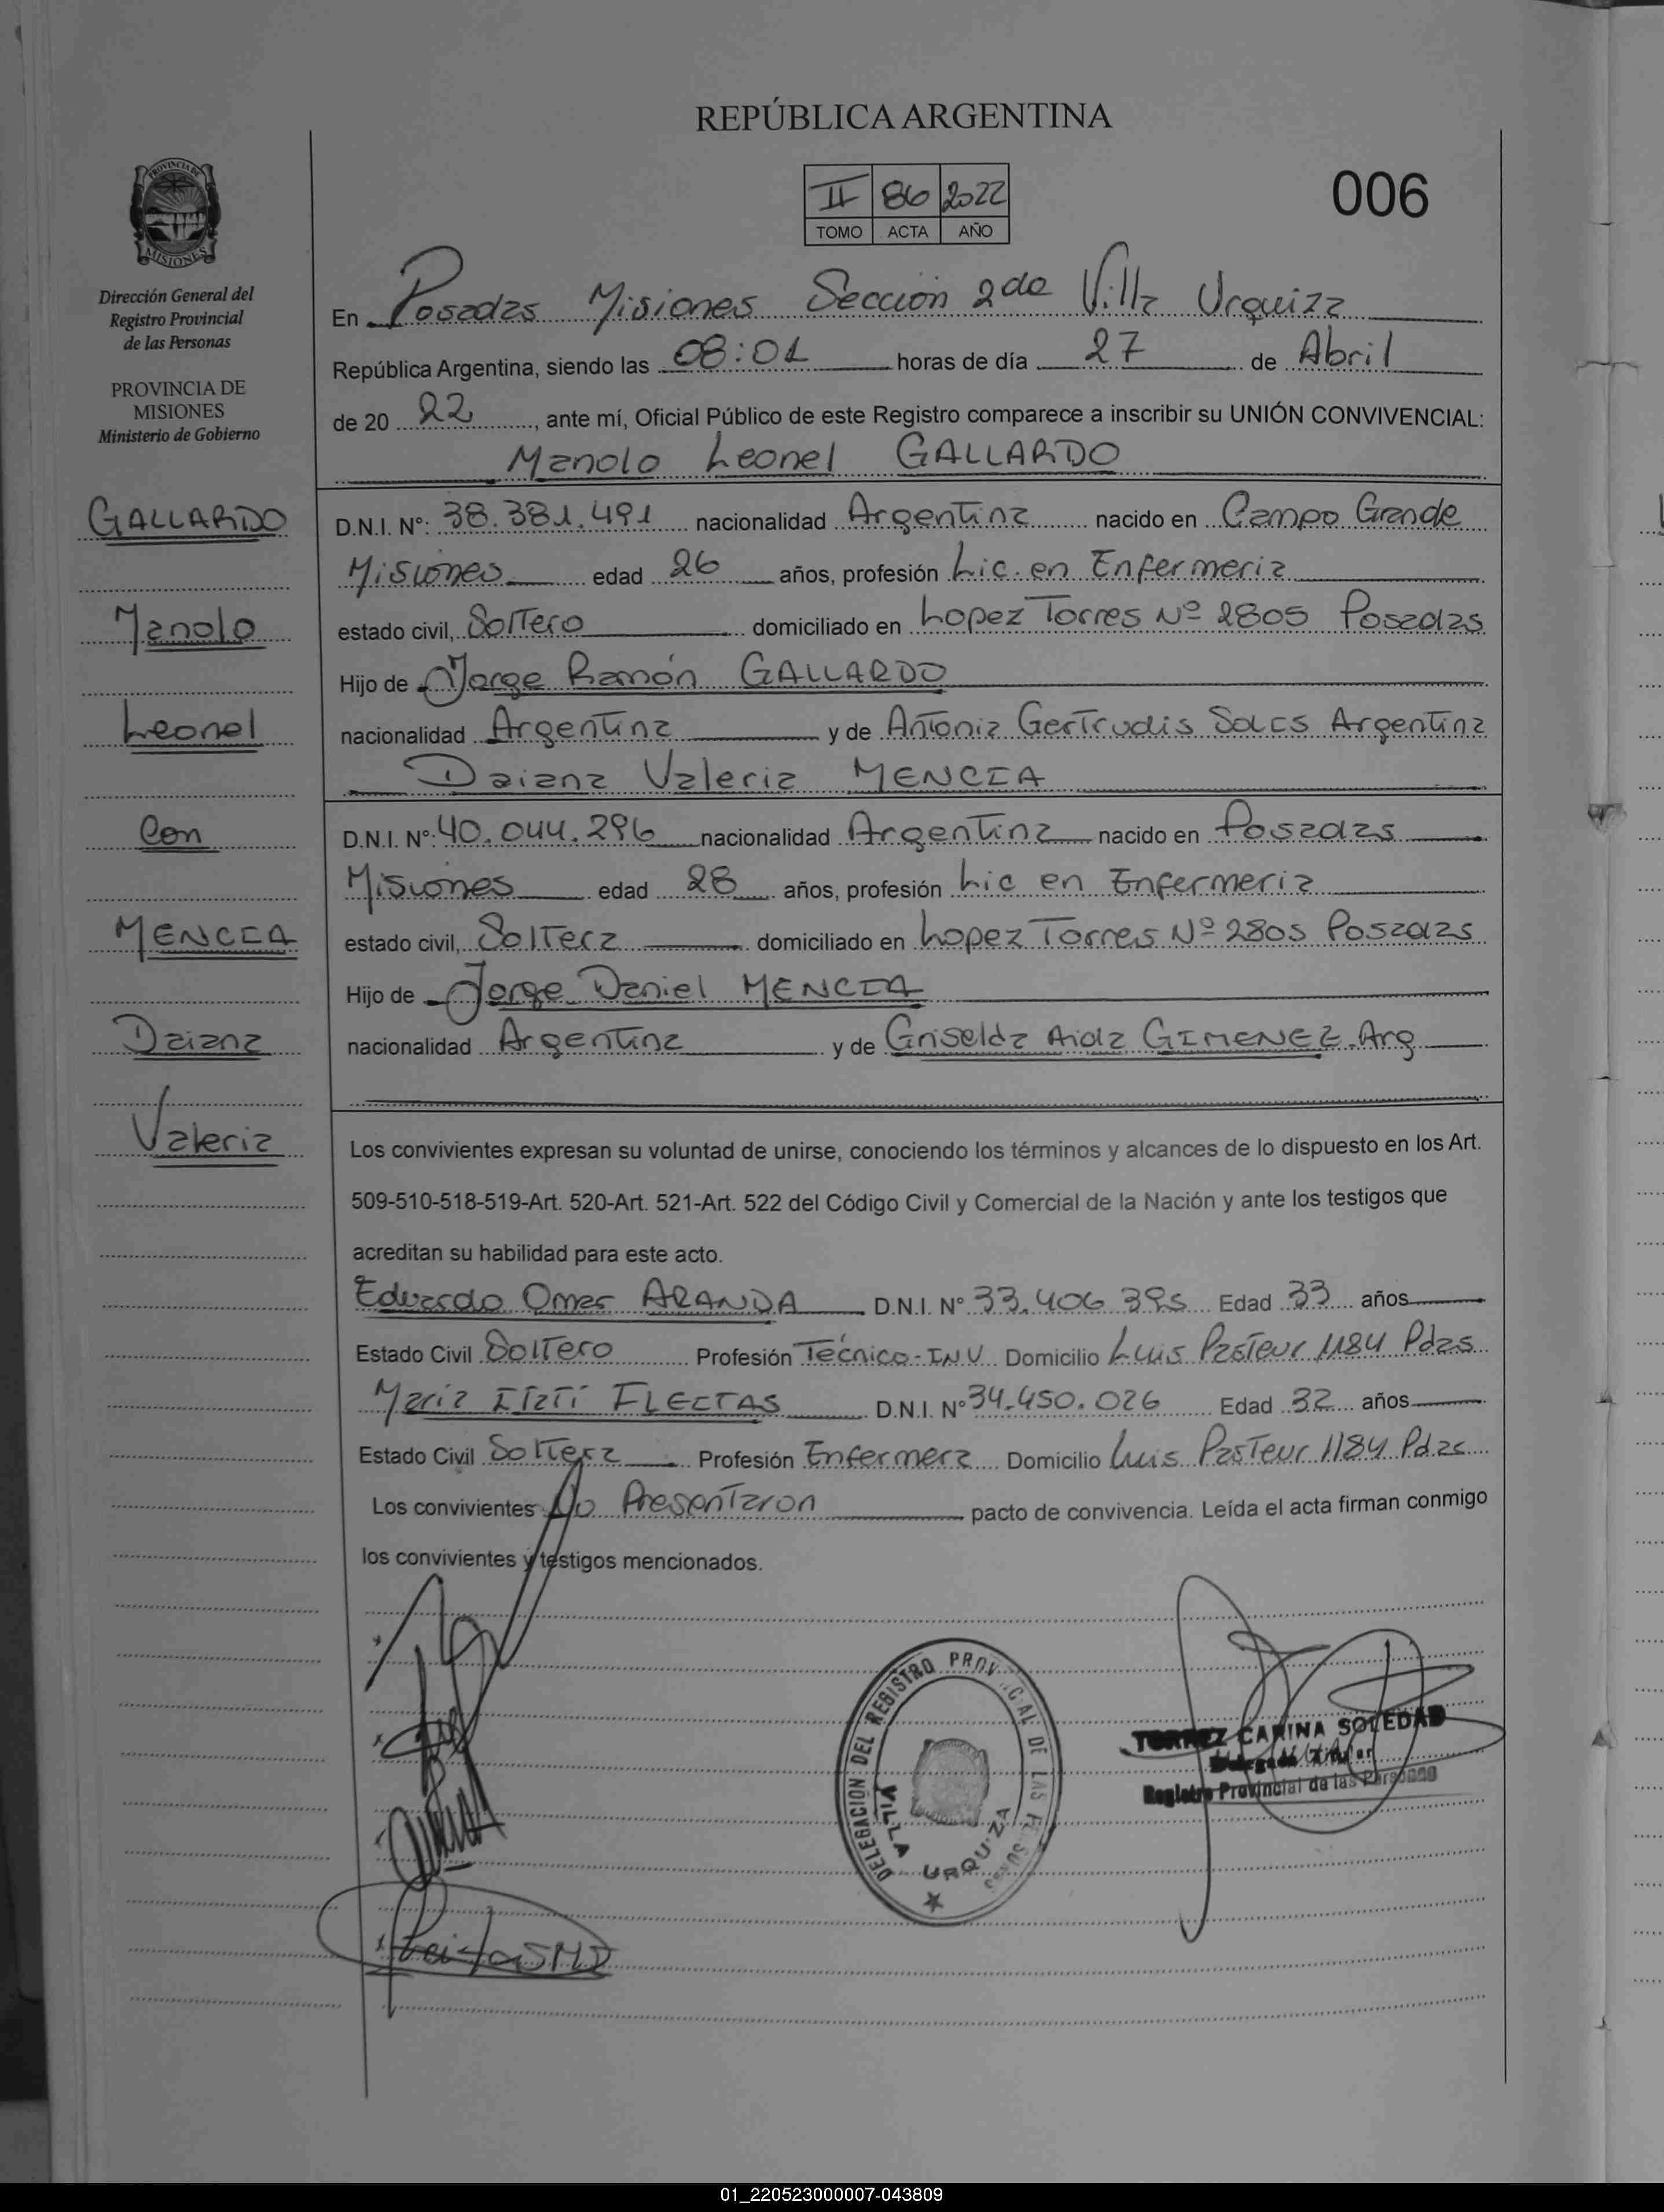 REPÚBLICA ARGENTINA
II 86 2022
TOMO ACTA AÑO
006
PROVINCIA DE
MISIONES
Dirección General del
Registro Provincial
de las Personas
PROVINCIA DE
MISIONES
Ministerio de Gobierno
GALLARDO
Manolo
Leonel
Con
MENCIA
Daiana
Valeria
En Posadas Misiones Sección 2da Villa Urquiza
República Argentina, siendo las 08:01 horas de día 27 de Abril
de 20 22, ante mí, Oficial Público de este Registro comparece a inscribir su UNIÓN CONVIVENCIAL:
Manolo Leonel GALLARDO
D.N.I. Nº: 38.381.491 nacionalidad Argentina nacido en Campo Grande
Misiones edad 26 años, profesión Lic. en Enfermeria
estado civil, Soltero domiciliado en Lopez Torres Nº 2805 Posadas
Hijo de Jorge Ramón GALLARDO
nacionalidad Argentina y de Antonia Gertrudis Argentina
Daiana Valeria MENCIA
D.N.I. Nº: 40.044.296 nacionalidad Argentina nacido en Posadas
Misiones edad 28 años, profesión Lic en Enfermeria
estado civil, Soltera domiciliado en Lopez Torres Nº 2805 Posadas
Hijo de Jorge Daniel MENCIA
nacionalidad Argentina y de Griselda Aida GIMENEZ-Arg
Los convivientes expresan su voluntad de unirse, conociendo los términos y alcances de lo dispuesto en los Art.
509-510-518-519-Art. 520-Art. 521-Art. 522 del Código Civil y Comercial de la Nación y ante los testigos que
acreditan su habilidad para este acto.
Eduardo Omar ARANDA D.N.I. Nº 33.406 395 Edad 33 años
Estado Civil Soltero Profesión Técnico-INV Domicilio Luis Pasteur 1184 Pdas
Maria Itatí FLECTAS D.N.I. Nº 34.450.026 Edad 32 años
Estado Civil Soltera Profesión Enfermera Domicilio Luis Pasteur 1184 Pdas
Los convivientes No Presentaron pacto de convivencia. Leída el acta firman conmigo
los convivientes y testigos mencionados.
DELEGACION DEL REGISTRO PROVINCIAL DE LAS PERSONAS
VILLA URQUIZA
TORREZ CARINA SOLEDAD
Delegada Titular
Registro Provincial de las Personas
01_220523000007-043809